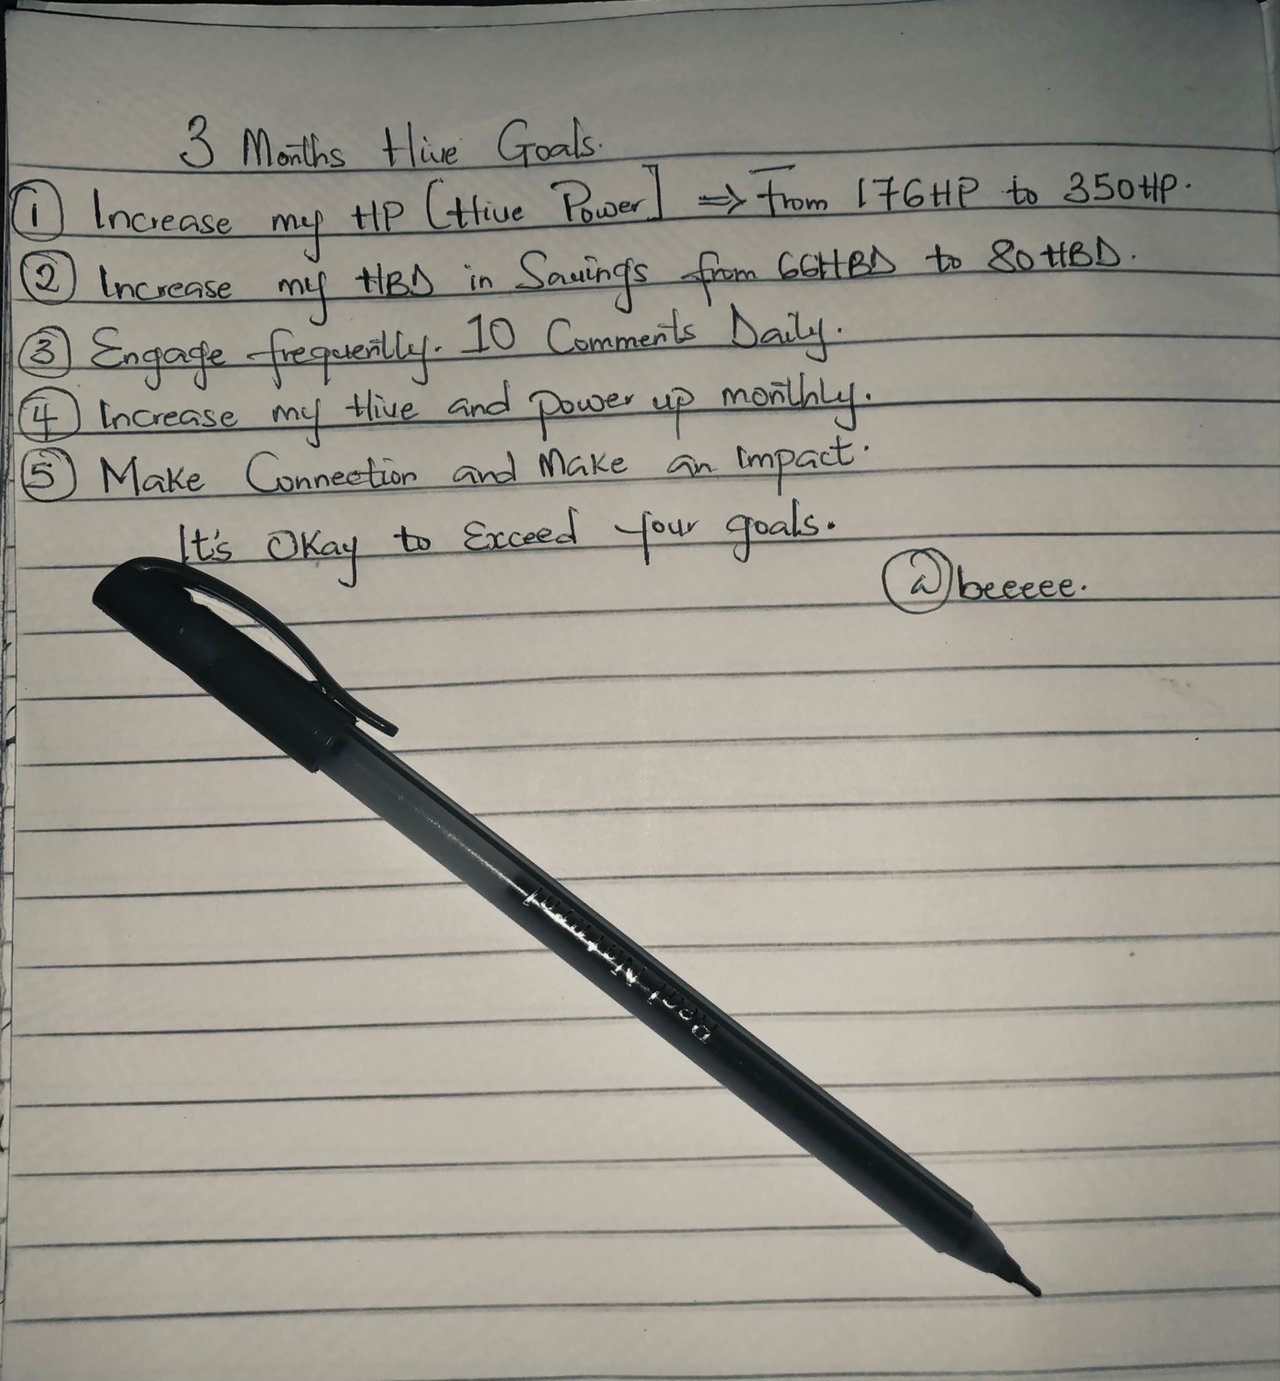 3 Months Hive Goals.
① Increase my HP [Hive Power] => From 176HP to 350HP.
② Increase my HBD in Savings from 66HBD to 80HBD.
③ Engage frequently. 10 Comments Daily.
④ Increase my Hive and power up monthly.
⑤ Make Connection and Make an Impact.
It's Okay to Exceed your goals.
@beeeee.
Real Natural